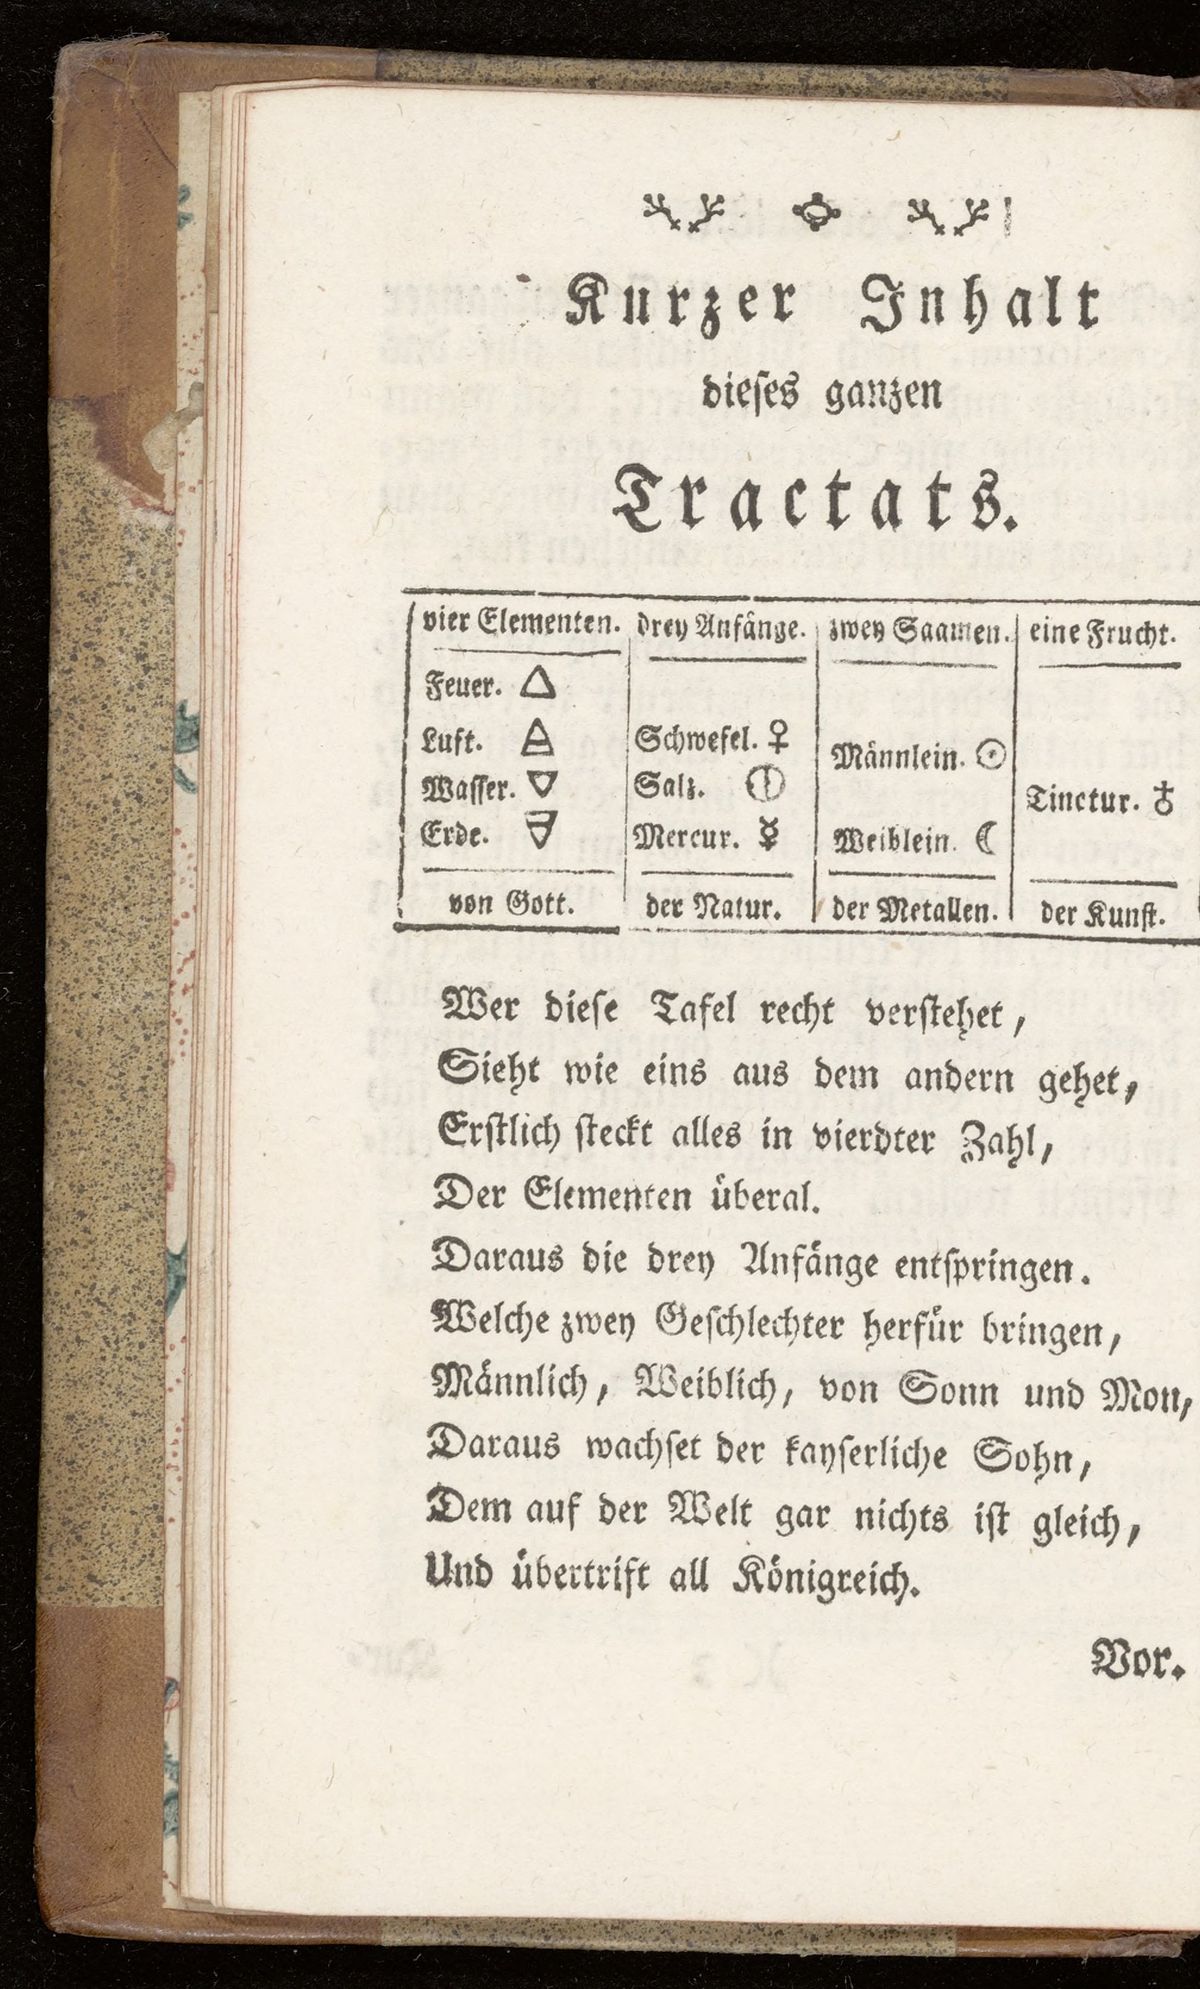 Kurzer Inhalt
dieses ganzen
Tractats.
vier Elementen. drey Anfänge. zwey Saamen. eine Frucht.
Feuer. 🜂
Luft. 🜁 Schwefel. ♀ Männlein. ☉
Wasser. 🜄 Salz. 🜔 Tinctur. ♁
Erde. 🜃 Mercur. ☿ Weiblein. ☾
von Gott. der Natur. der Metallen. der Kunst.
Wer diese Tafel recht verstehet,
Sieht wie eins aus dem andern gehet,
Erstlich steckt alles in vierdter Zahl,
Der Elementen überal.
Daraus die drey Anfänge entspringen.
Welche zwey Geschlechter herfür bringen,
Männlich, Weiblich, von Sonn und Mon,
Daraus wachset der kayserliche Sohn,
Dem auf der Welt gar nichts ist gleich,
Und übertrift all Königreich.
Vor.